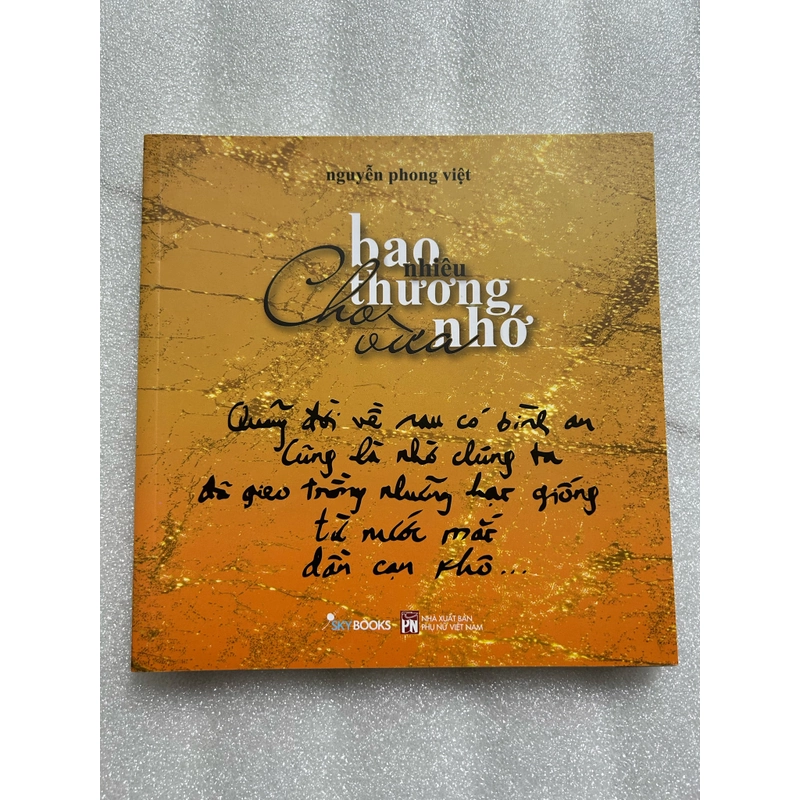 nguyễn phong việt
bao
nhiêu
thương
nhớ
Cho
vừa
Quãng đời về sau có bình an
Cũng là nhờ chúng ta
đã gieo trồng những hạt giống
từ nước mắt
dần cạn khô...
SKYBOOKS
PN
NHÀ XUẤT BẢN
PHỤ NỮ VIỆT NAM